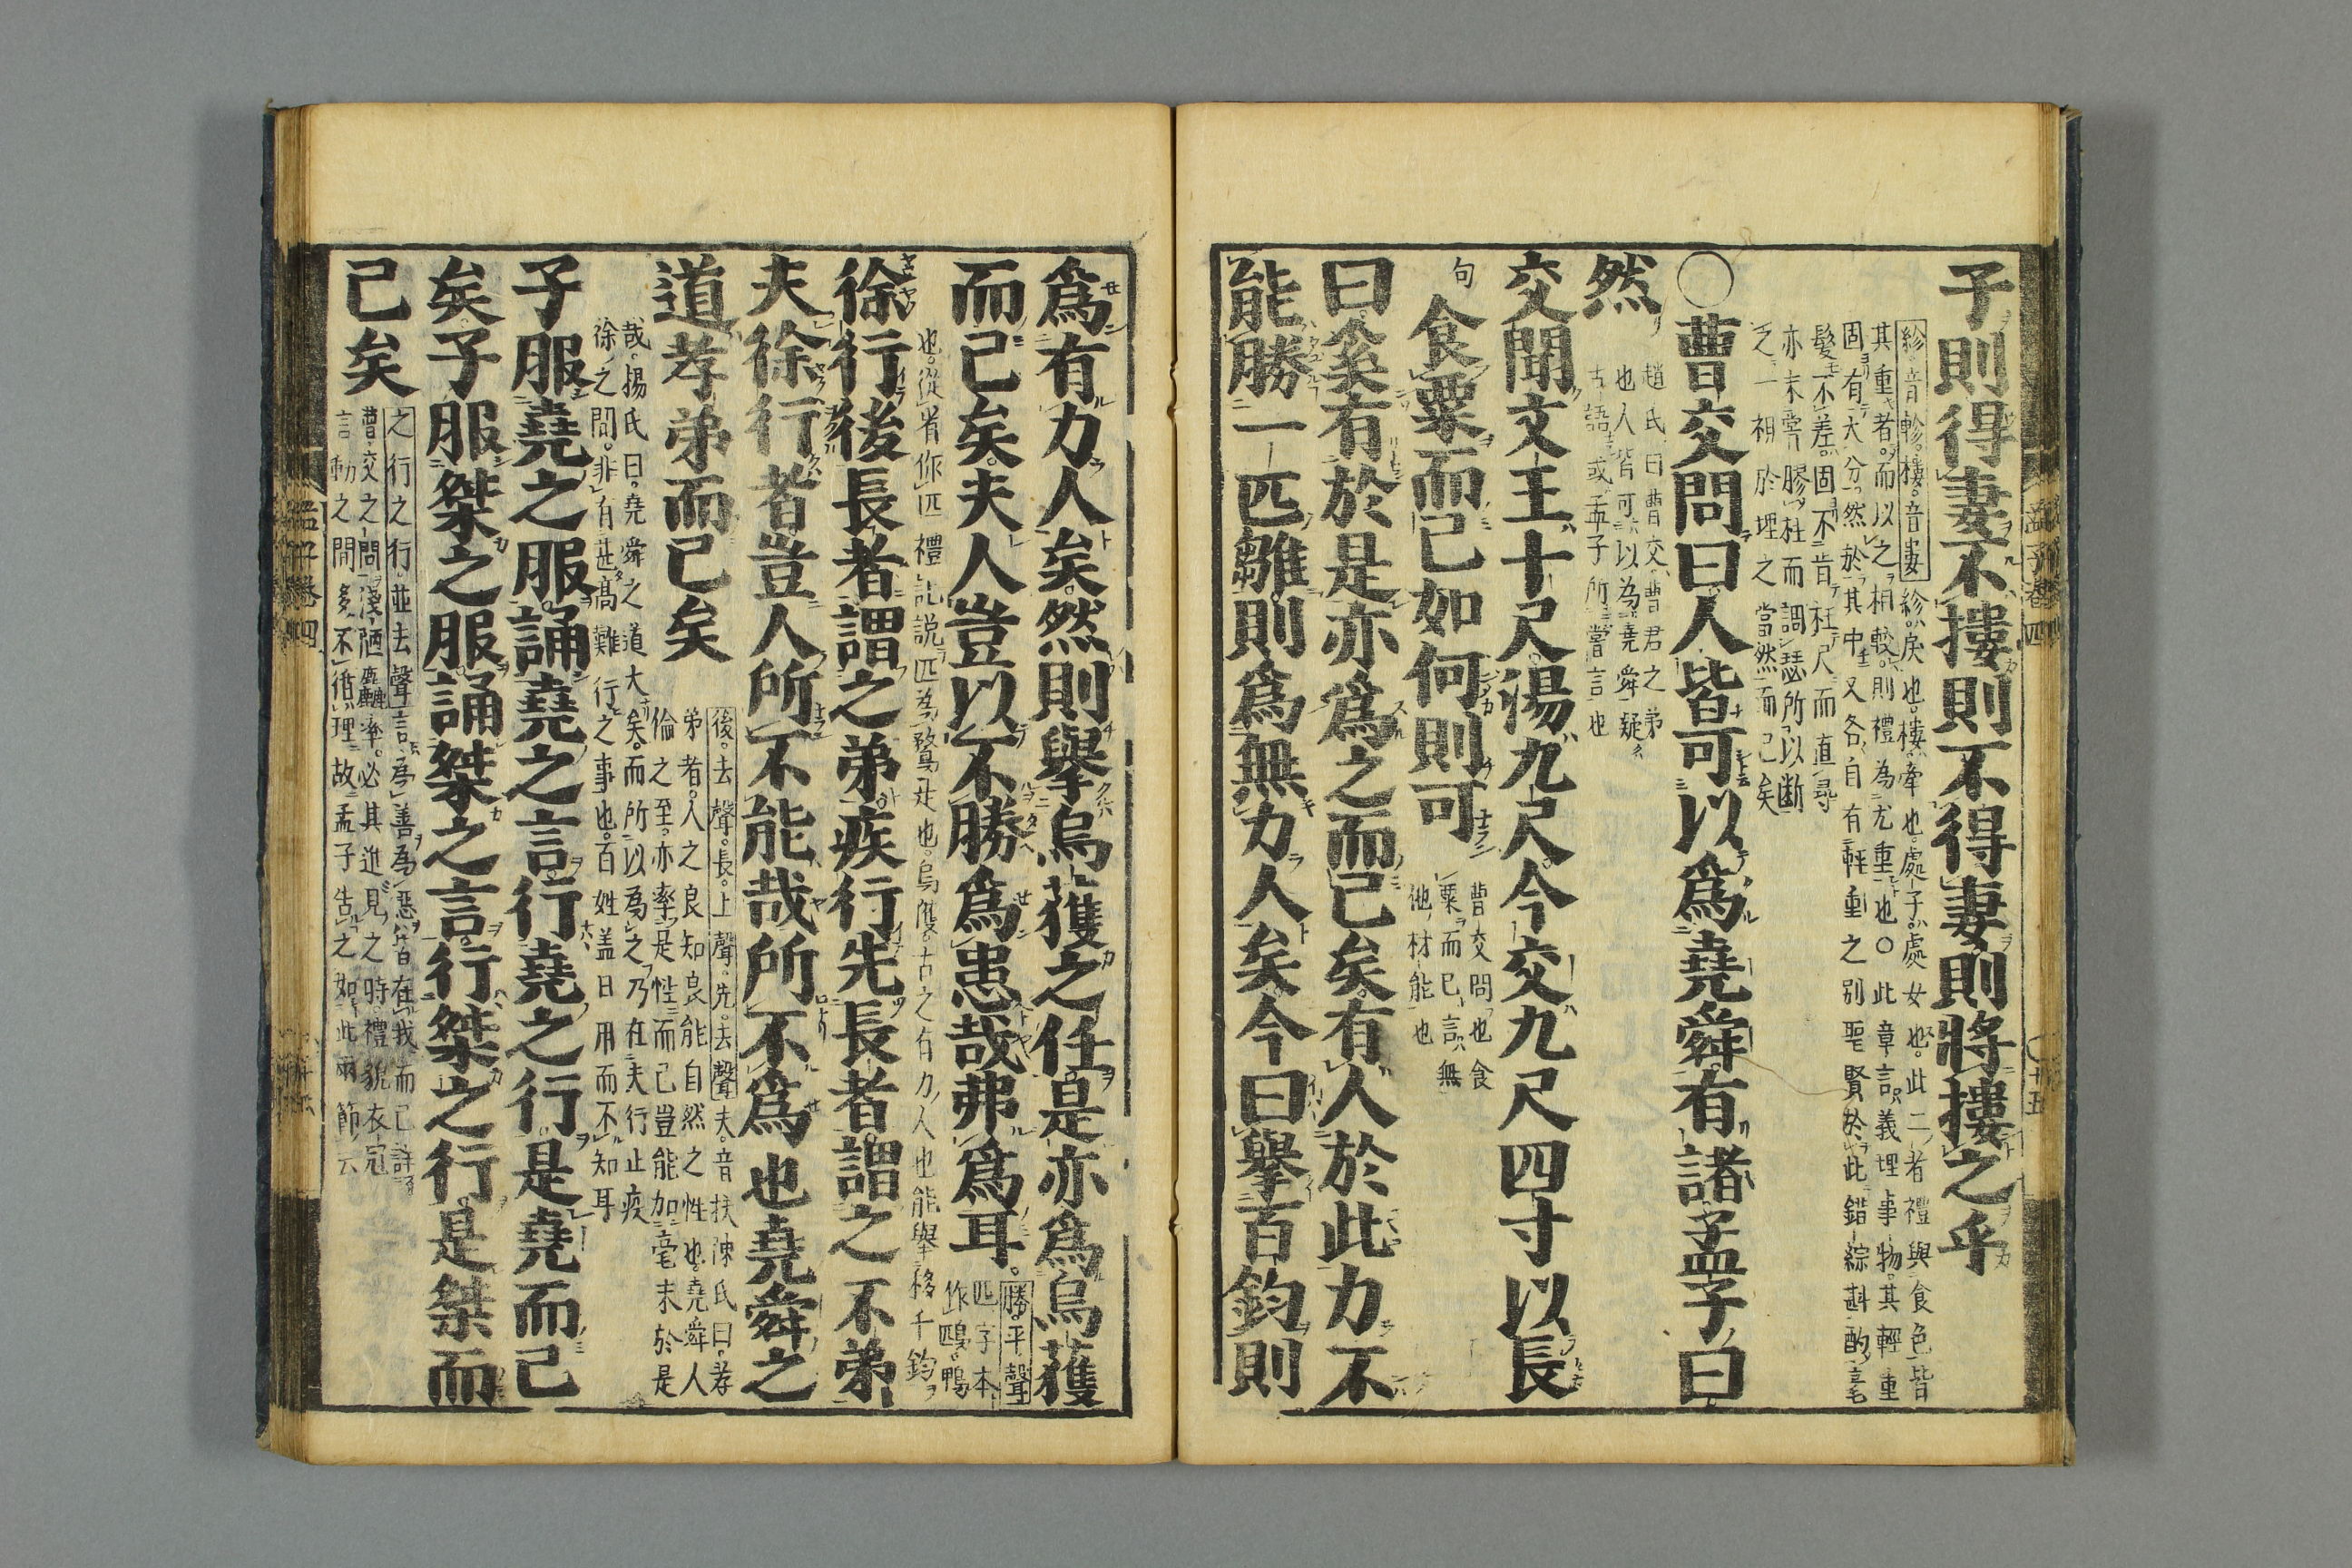 子則得妻不摟則不得妻則將摟之乎
紾音軫。摟音婁紾戾也。摟牽也。處子處女也。此二者禮與食色皆
其重者。而以之相較。則禮為尤重也○此章言義理事物。其輕重
固有大分。然於其中又各自有輕重之別聖賢於此錯綜斟酌毫
髮不差。固不肯枉尺而直尋
亦未嘗膠柱而調瑟所以斷
之一視於理之當然而已矣
○曹交問曰人皆可以爲堯舜有諸孟子曰
然
趙氏曰曹交曹君之弟
也人皆可以為堯舜疑
古語或孟子所嘗言也
交聞文王十尺湯九尺今交九尺四寸以長
句
食粟而已如何則可
曹交問也食
粟而已言無
他材能也
曰奚有於是亦爲之而已矣有人於此力不
能勝一匹雛則爲無力人矣今曰擧百鈞則
爲有力人矣然則擧烏獲之任是亦爲烏獲
而已矣夫人豈以不勝爲患哉弗爲耳
勝。平聲
匹字本
作鴄。鴨
也。從省作匹禮記說匹為鶩是也。烏獲。古之有力人也能擧移千鈞
徐行後長者謂之弟疾行先長者謂之不弟
夫徐行者豈人所不能哉所不爲也堯舜之
道孝弟而已矣
後。去聲。長。上聲。先。去聲夫。音扶陳氏曰。孝
弟者。人之良知良能自然之性也。堯舜人
倫之至。亦率是性而已豈能加毫末於是
哉。楊氏曰。堯舜之道大矣。而所以為之乃在夫行止疾
徐之間。非有甚高難行之事也。百姓盖日用而不知耳
子服堯之服誦堯之言行堯之行是堯而已
矣子服桀之服誦桀之言行桀之行是桀而
已矣
之行之行。並去聲言為善為惡皆在我而已詳
曹交之問淺陋麤率。必其進見之時。禮貌衣冠
言動之間多不循理故孟子告之如此兩節云
孟子卷四
孟子卷四
十五